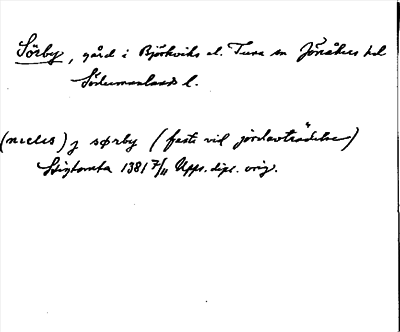 Sörby, gård i Björkviks el. Tuna sn Jönåkers hd
Södermanlands l.
(nicles) j sørby (faste vid jordavträdelse)
Stigtomta 1381 7/11 Upps. dipl. orig.